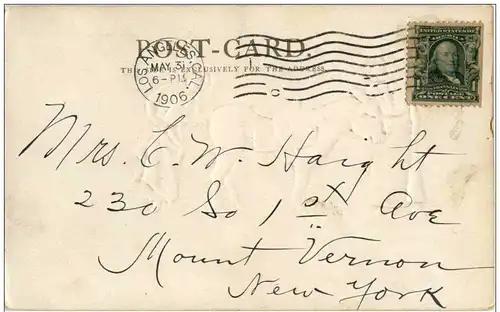 POST-CARD.
THIS SIDE IS EXCLUSIVELY FOR THE ADDRESS.
LOS ANGELES, CAL.
MAY 31
6-PM
1906
Mrs. C. W. Haight
230 So 1st Ave
Mount Vernon
New York